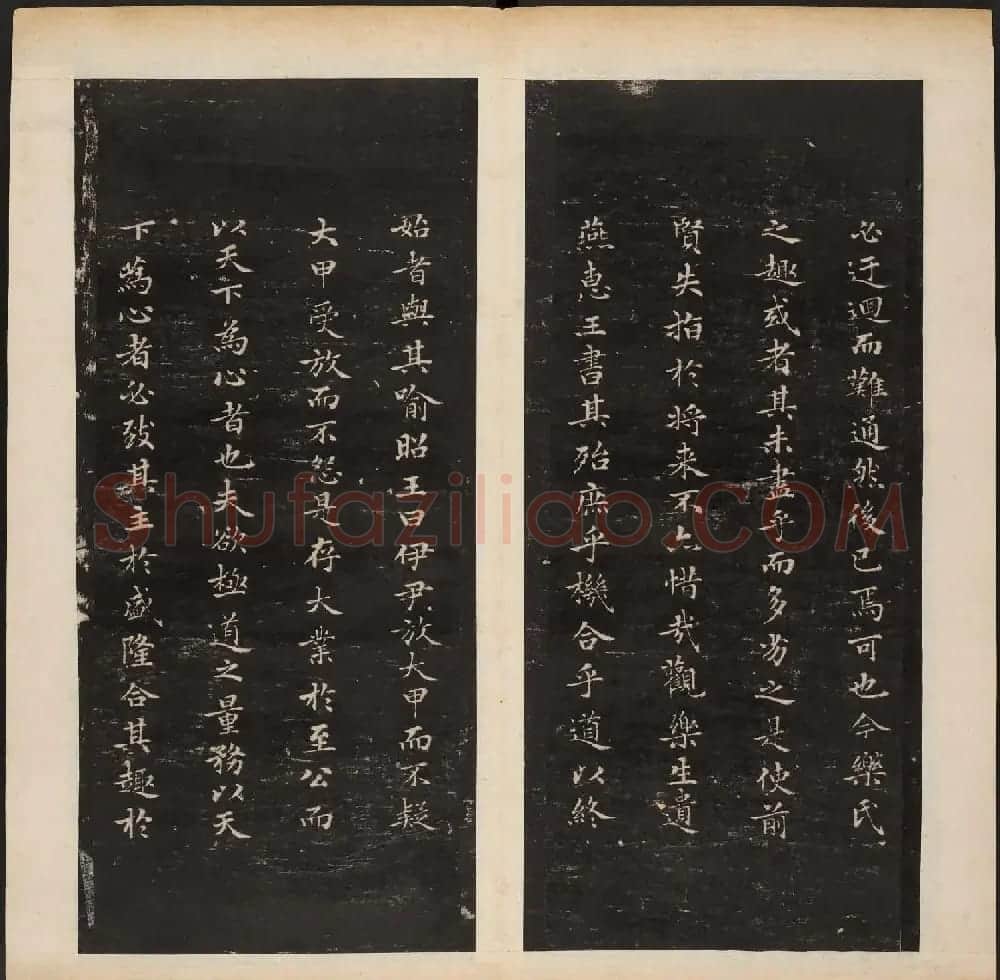 必迂迴而難通然後已焉可也今樂氏
之趣或者其未盡乎而多劣之是使前
賢失指於將来不亦惜哉觀樂生遺
燕惠王書其殆庶乎機合乎道以終
始者與其喻昭王曰伊尹放大甲而不疑
大甲受放而不怨是存大業於至公而
以天下為心者也夫欲極道之量務以天
下為心者必致其主於盛隆合其趣於
Shufaziliao.COM